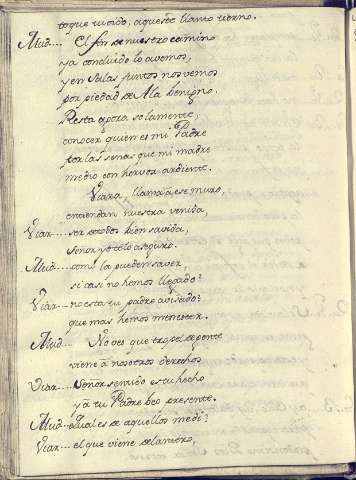 toque rucido, aqueste llanto tierno.
Mud... El fin de nuestro camino
ya concluido lo avemos,
y en Salas juntos nos vemos
por piedad de Ala benigno.
Resta agora solamente,
conocer quien es mi Padre
por las señas que mi madre
me dio con hervor ardiente.
Viara, llama à ese muro,
entiendan nuestra venida,
Viar... ser de todos bien savida,
Señor yo te lo aseguro.
Mud... como la pueden saver,
si casi no hemos llegado?
Viar... no esta tu padre avisado?
que mas hemos menester.
Mud... No ves que tropel de gente
viene à nosotros derechos
Viar... Señor sentido es tu hecho
ya à tu Padre beo presente.
Mud... qual es de aquellos medi?
Viar... el que viene delantero,